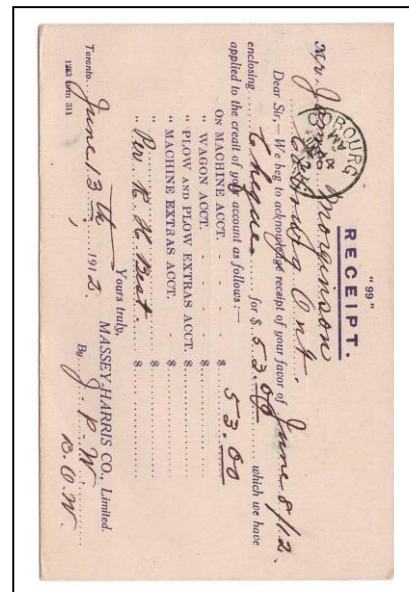 "99"
RECEIPT.
Mr. John
Cobourg Ont.
COBOURG
AM
Dear Sir,—We beg to acknowledge receipt of your favor of June 8/12.
enclosing Cheque for $ 53.00 which we have
applied to the credit of your account as follows:—
ON MACHINE ACCT. - - - - $ 53.00
" WAGON ACCT. - - - - $
" PLOW AND PLOW EXTRAS ACCT. $
" MACHINE EXTRAS ACCT. - $
" Per. R. H. Best. $
Yours truly,
MASSEY-HARRIS CO., Limited.
Toronto, June 13th 1912. By J. R. W.